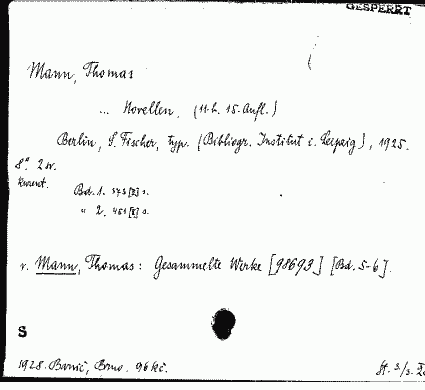 GESPERRT
Mann, Thomas
... Novellen, (11.-15. Aufl.)
Berlin, S. Fischer, typ. (Bibliogr. Institut i. Leipzig), 1925.
8°. 2 sv.
Bd. 1. 373 [2] s.
" 2. 461 [2] s.
v. Mann, Thomas: Gesammelte Werke [98693] [Bd. 5-6].
S
1928. Barvič, Brno. 96 Kč.